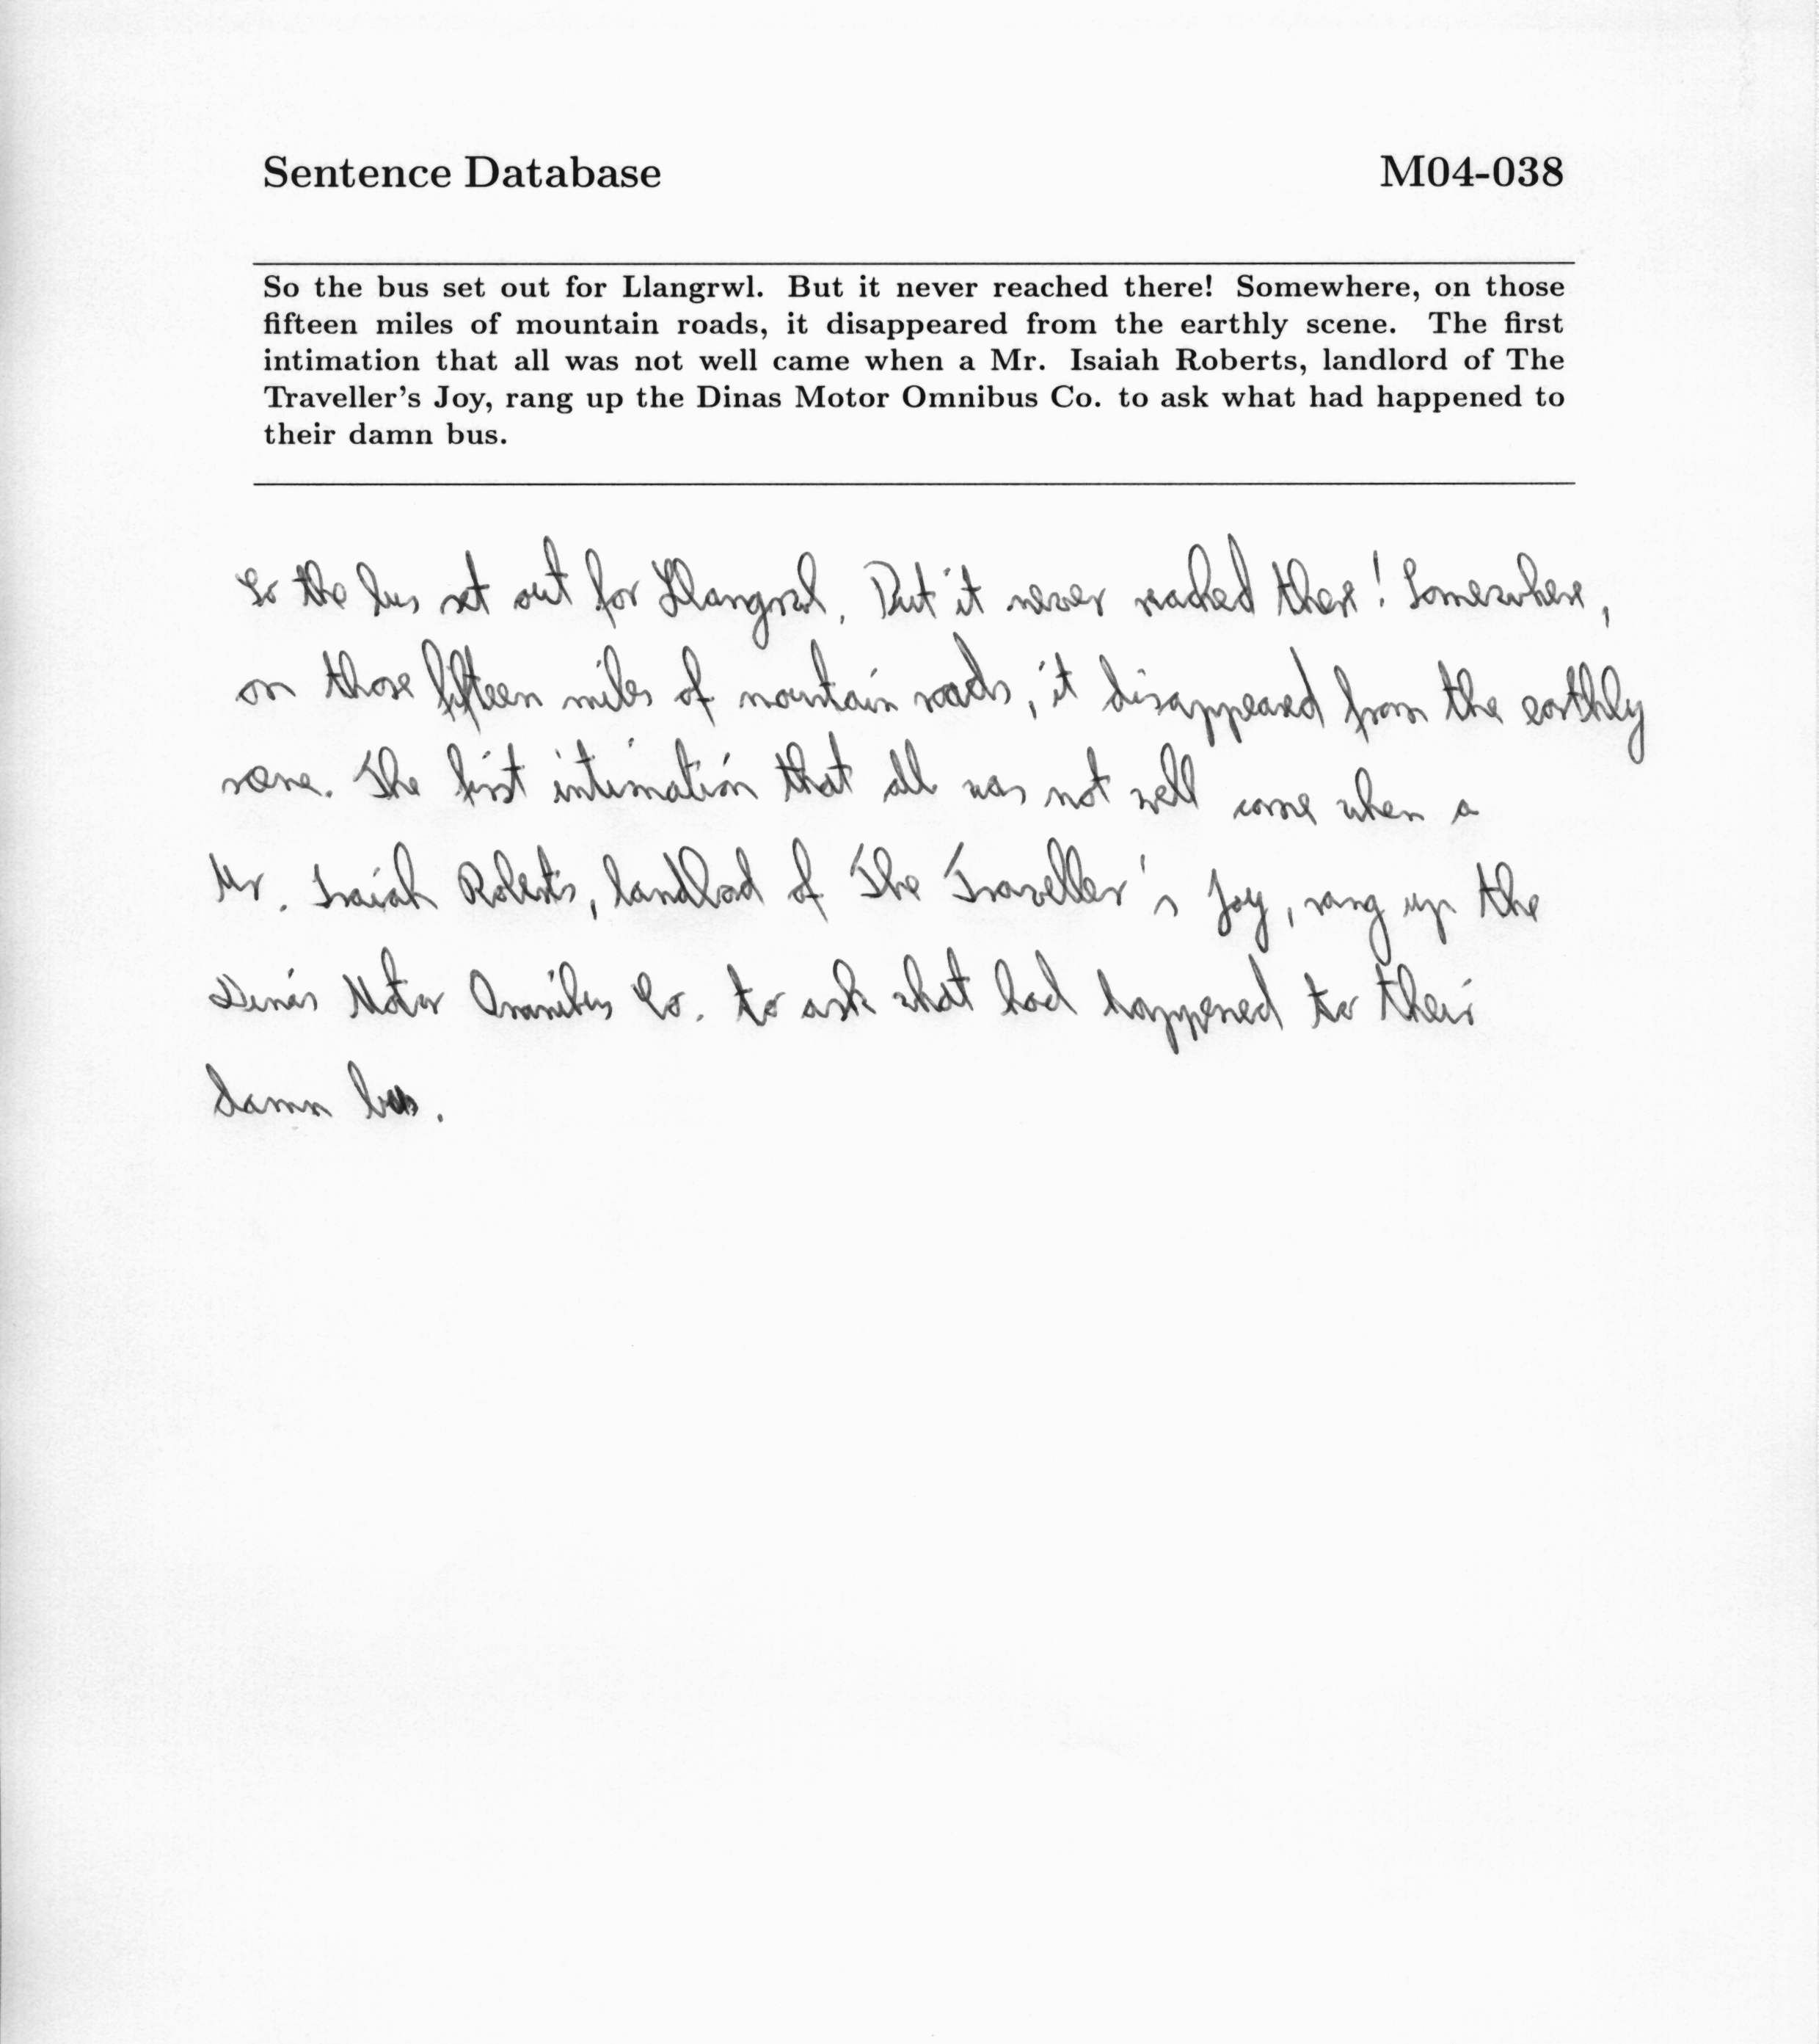 Sentence Database M04-038
So the bus set out for Llangrwl. But it never reached there! Somewhere, on those
fifteen miles of mountain roads, it disappeared from the earthly scene. The first
intimation that all was not well came when a Mr. Isaiah Roberts, landlord of The
Traveller's Joy, rang up the Dinas Motor Omnibus Co. to ask what had happened to
their damn bus.
So the bus set out for Llangrwl. But it never reached there! Somewhere,
on those fifteen miles of mountain roads, it disappeared from the earthly
scene. The first intimation that all was not well came when a
Mr. Isaiah Roberts, landlord of The Traveller's Joy, rang up the
Dinas Motor Omnibus Co. to ask what had happened to their
damn bus.